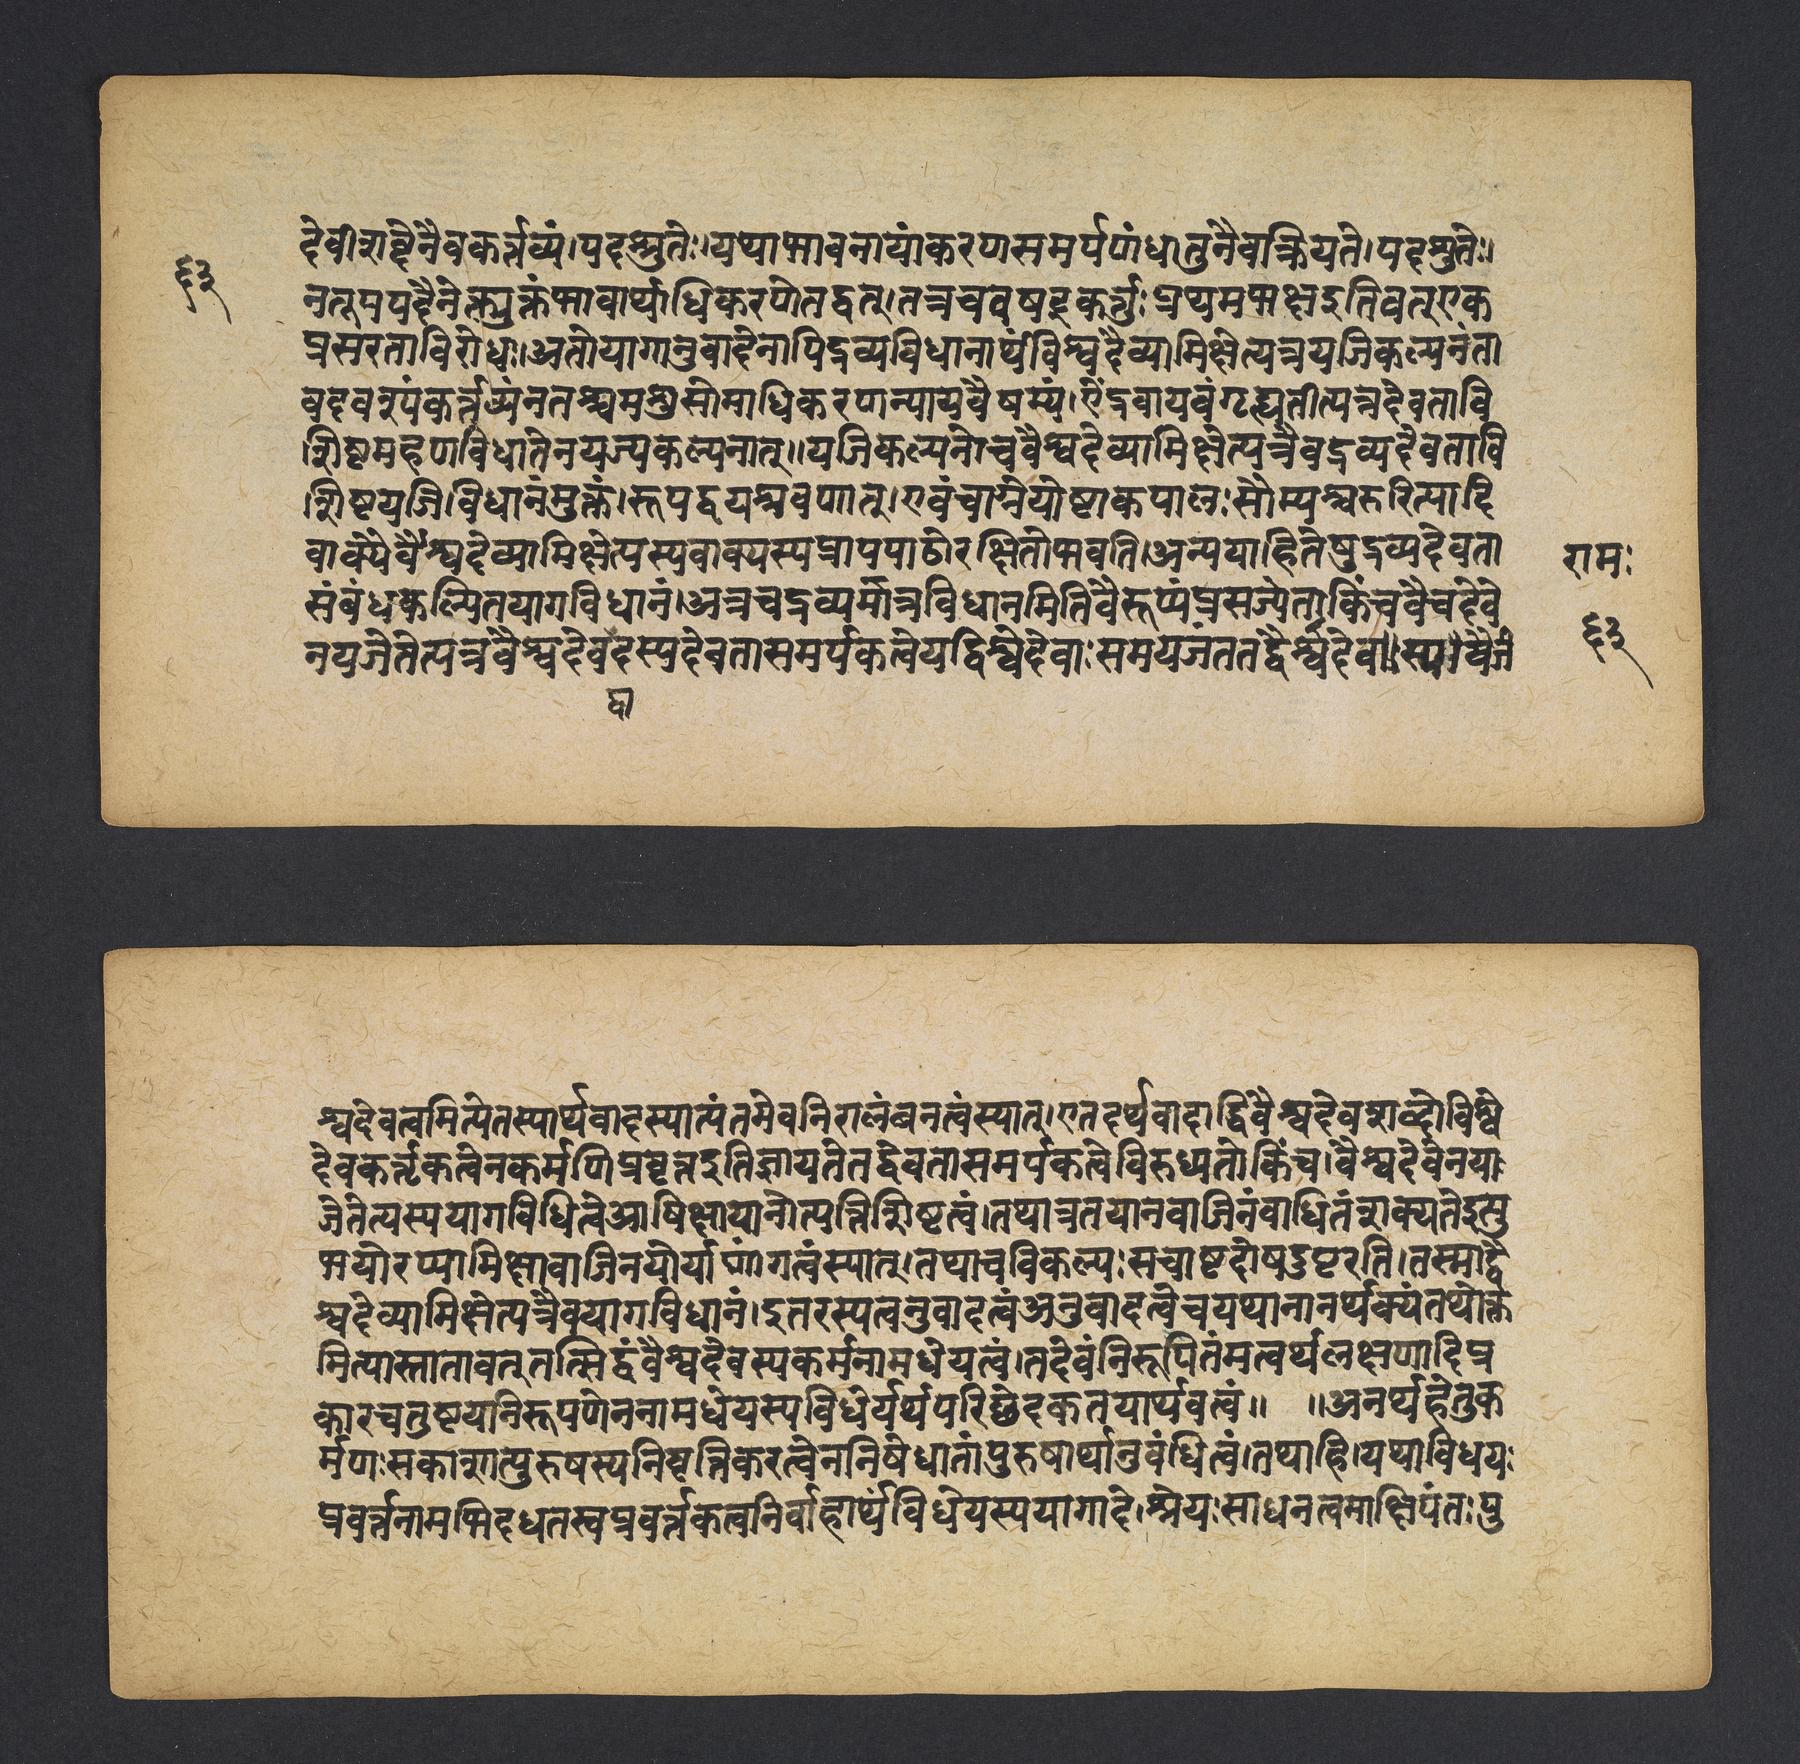 ६३
देवीशब्देनैवकर्त्तव्यं।पदश्रुतेः।यथाभावनायांकरणसमर्पणंधातुनैवक्रियते।पदश्रुतेः।
नतूपपदेनेत्युक्तंभावार्थाधिकरणेतद्वत्।तत्रचवषट्कर्त्तुःप्रथमभक्षइतिवत्एक
प्रसरताविरोधः।अतोयागानुवादेनापिद्रव्यविधानार्थंविश्वदैव्यामिक्षेत्यत्रयजिकल्पनंता
वदवश्यंकर्त्तव्यंनतश्चमश्रुसोमाधिकरणन्यायवैषम्यं।ऐंद्रवायवंगृह्णातीत्यत्रदेवतावि
शिष्टग्रहणविधातेनयज्यकल्पनात्॥यजिकल्पनेचवैश्वदेव्यामिक्षेत्यत्रैवद्रव्यदेवतावि
शिष्टयजिविधानंमुक्तं।रूपद्वयश्रवणात्।एवंचाग्नेयोष्टाकपालःसौम्यश्चरुरित्यादि
वाक्यैर्वैश्वदेव्यामिक्षेत्यस्यवाक्यस्यप्रायपाठोरक्षितोभवति।अन्यथाहितेषुद्रव्यदेवता
रामः
संबंधकल्पितयागविधानं।अत्रचद्रव्यमात्रविधानमितिवैरूप्यंप्रसज्येत।किंचवैचदेवे
६३
नयजेतेत्यत्रवैश्वदेवदस्यदेवतासमर्पकत्वेयद्विश्वेदेवाःसमयजंततद्वैश्वदेव॥स्य॥वैजे
ब्द
श्वदेवत्वमित्येतस्यार्थवादस्यात्यंतमेवनिरालंबनत्वंस्यात्।एतदर्थवादाद्विवैश्वदेवशब्दोविश्वे
देवकर्तृकत्वेनकर्मणिप्रवृत्तइतिज्ञायतेतद्देवतासमर्पकत्वेविरुध्यते।किंच।वैश्वदेवेनया
जेतेत्यस्ययागविधित्वेआषिक्षायानोत्पत्तिशिष्टत्वं।तथात्रतयानवाजिनंबाधितंशक्यतेइसु
भयोरप्यामिक्षावाजिनयोर्यागांगत्वंस्यात्।तथाचविकल्पःसचाष्टदोषदुष्टरति।तस्माद्वै
श्वदेव्यामिक्षेत्यत्रैवयागविधानं।इतरस्यत्वनुवादत्वंअनुवादत्वेचयथानानर्थक्यंतथोक्त
मित्यास्तातावत्तत्सिद्धंवैश्वदेवस्यकर्मनामधेयत्वं।तदेवंनिरूपितंमत्वर्थलक्षणादिप्र
कारचतुष्टयानिरूपणेननामधेयस्यविधेयर्थपरिच्छेदकतयार्थवत्वं॥ ॥अनर्थहेतुक
र्मणःसकाशात्पुरुषस्यनिवृत्तिकरत्वेननिषेधानांपुरुषार्थानुबंधित्वं।तथाहि।यथाविधयः
प्रवर्त्तनामभिदधतस्वप्रवर्त्तकत्वनिर्वाहार्थंविधेयस्ययागादेःश्रेयःसाधनत्वमाक्षिपंतःपु